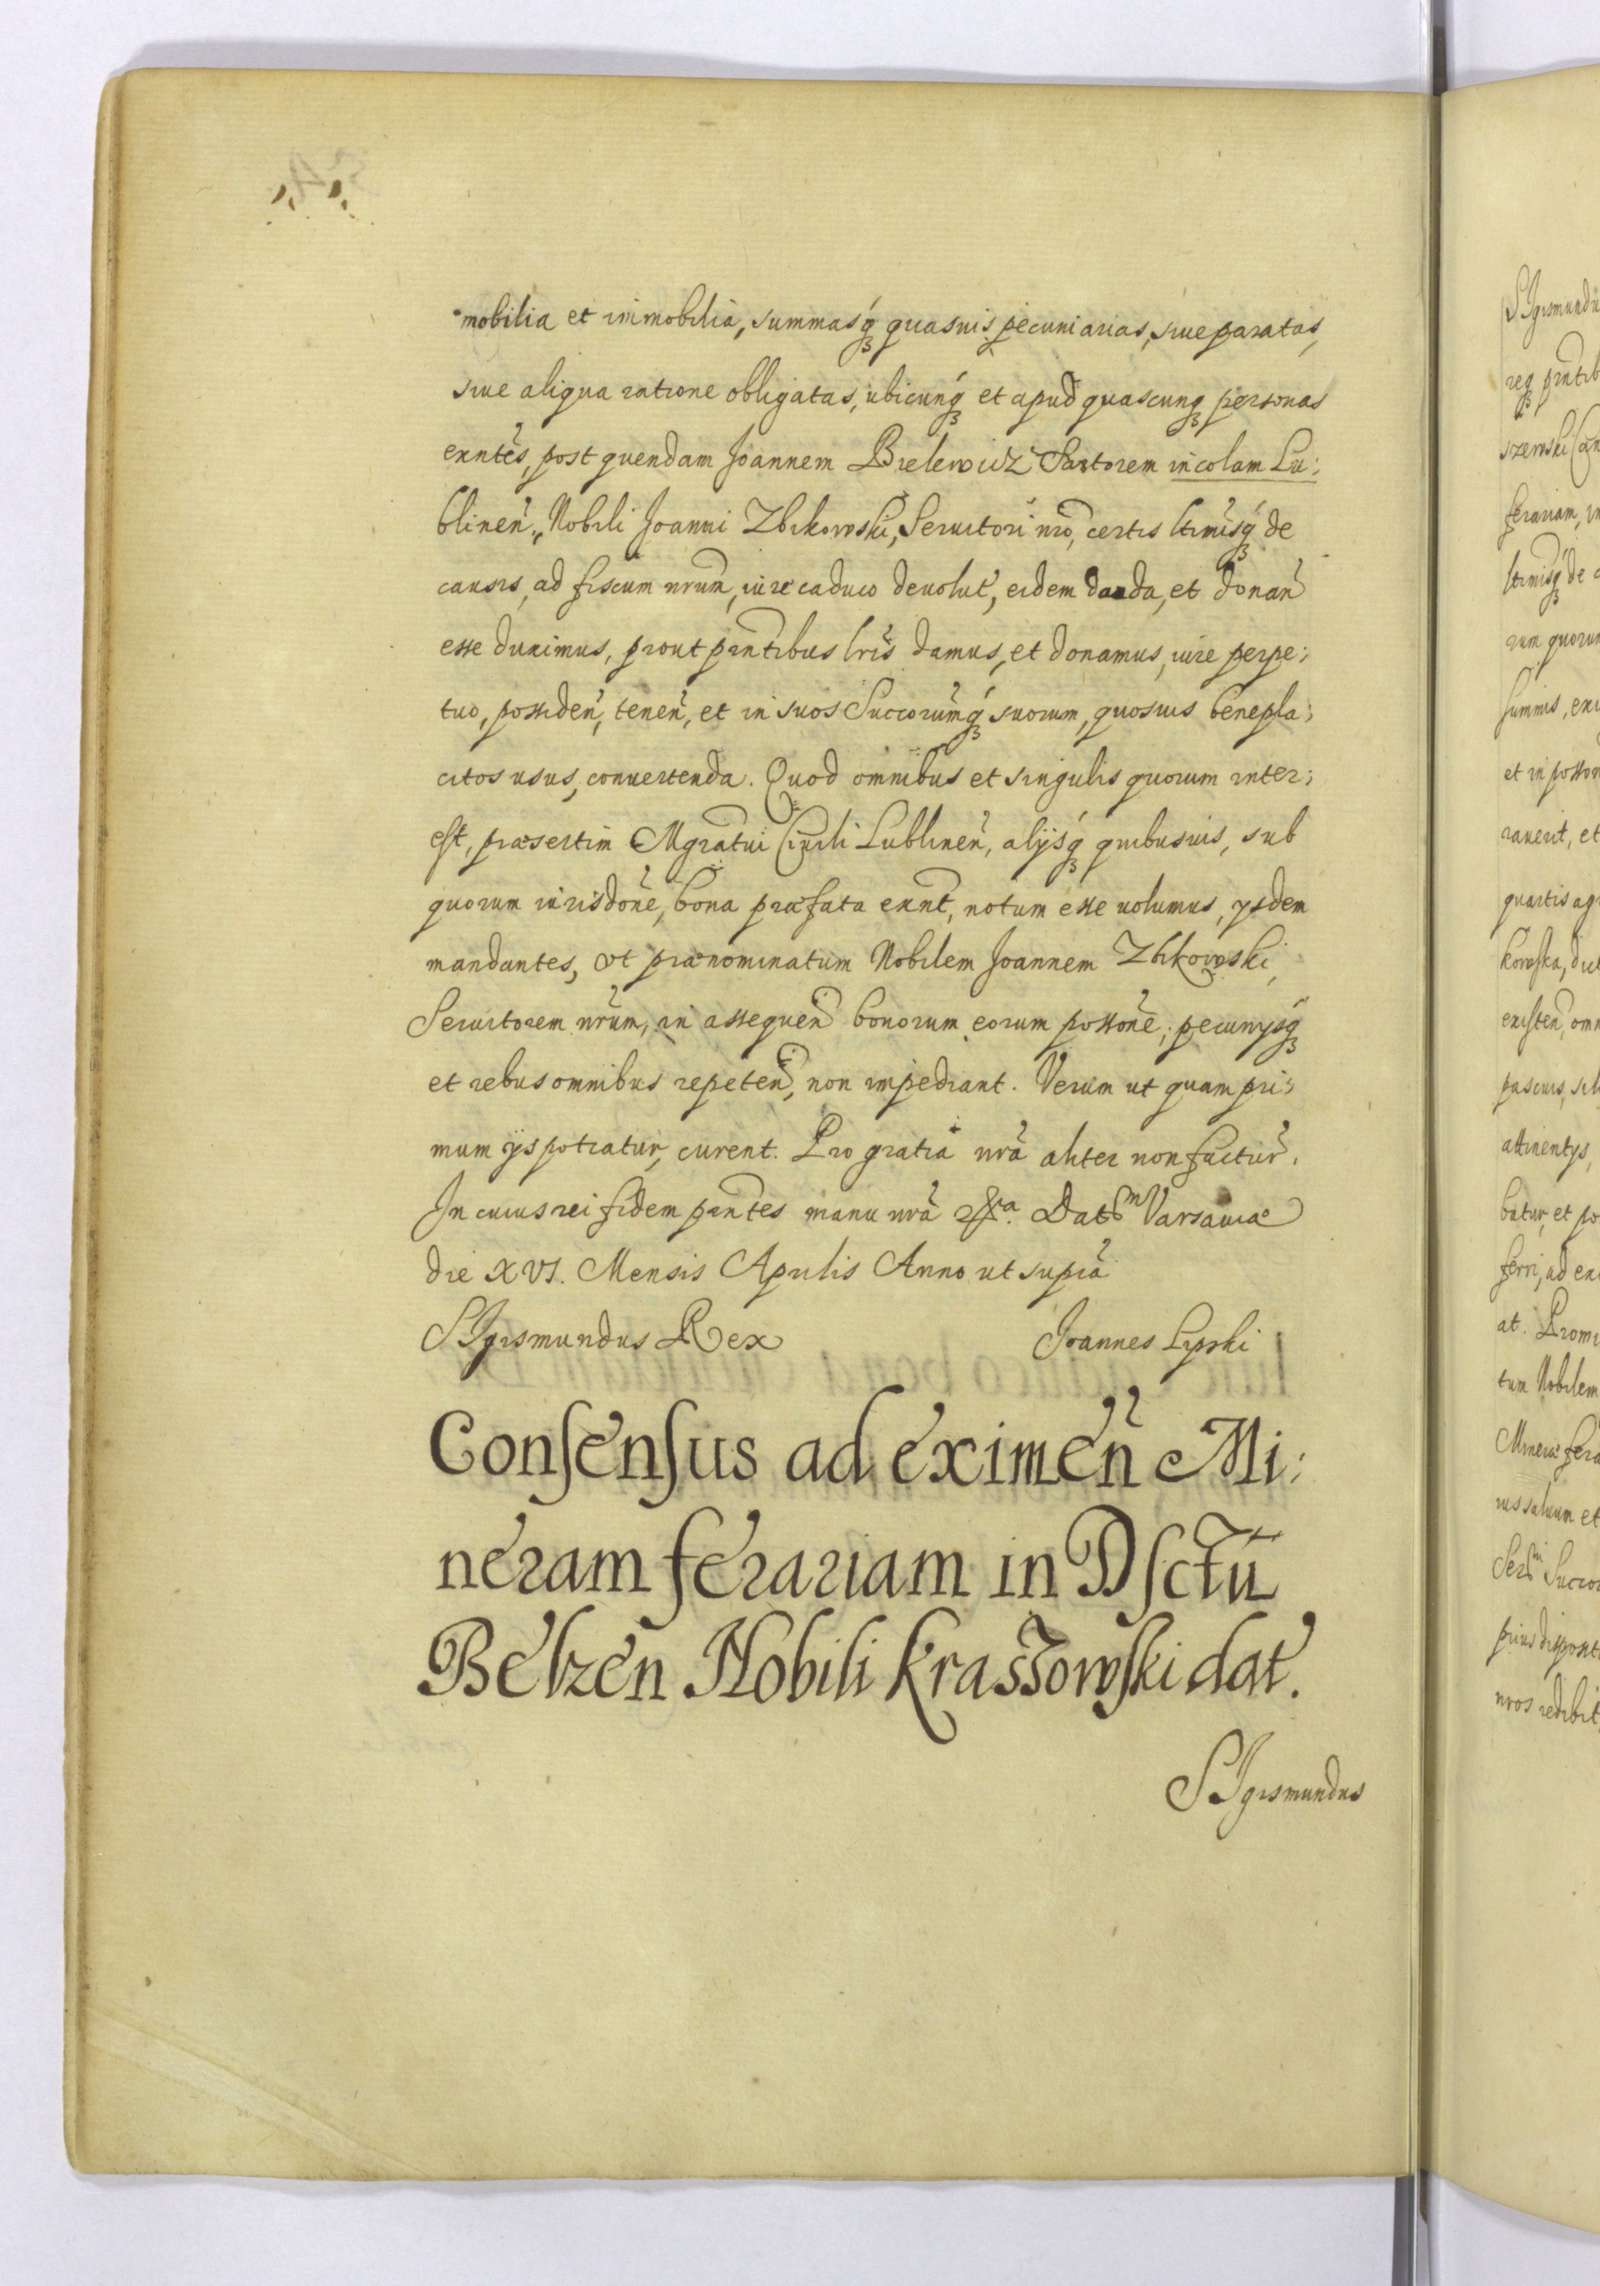 mobilia et immobilia, summasq́ꝫ quasuis pecuniarias, siue paratas,
siue aliqua ratione obligatas, ubicunq́ꝫ et apud quascunqꝫ personas
exntes̃, post quendam Joannem Bielewicz Sartorem incolam Lu:
blineñ., Nobili Joanni Zbikowski, Seruitori nrõ, certis ltimisq́ꝫ de
causis, ad fiscum nrum̃, iure caduco deuolut̃, eidem danda, et donañ
esse duximus, prout pntibus̃ lris̃ damus, et donamus, iure perpe:
tuo, possideñ, teneñ, et in suos Succorum̃q́ꝫ suorum, quosuis benepla:
citos usus, conuertenda. Quod omnibus et singulis quorum inter:
est, præsertim Mgratui Ciuili Lublineñ, alijsq́ꝫ quibusuis, sub
quorum iurisdone͂, bona præfata exnt̃, notum esse uolumus, ysdem
mandantes, ut prænominatum Nobilem Joannem Zbikowski,
Seruitorem nrum̃, in assequeñd bonorum eorum possone͂, pecunysq́ꝫ
et rebus omnibus repeteñd, non impediant. Verum ut quam pri:
mum ijs potiatur, curent. Pro gratia nrã aliter non factur̃.
In cuius rei fidem pntes̃ manu nrã &ᶜᵃ. Datᵐ Varsauiæ
die XVI. Mensis Aprilis Anno ut supra
SIgismundus Rex Joannes Lipski
Consensus ad eximeñ Mi:
neram ferariam in Dsctũ
Belzen Nobili Krassowski dat.
SIgismundus
SIgismundu
szewski
ferariam, in
rum quorum
summis, exi
et in posson
rauerit, et
quartis agr
kowska, dict
existen, omn
pascuis, sil
attinentys,
batur, et po
ferri, ad ex
at. Promi
tum Nobilem
Mineræ fera
ius saluum et
nros redibit